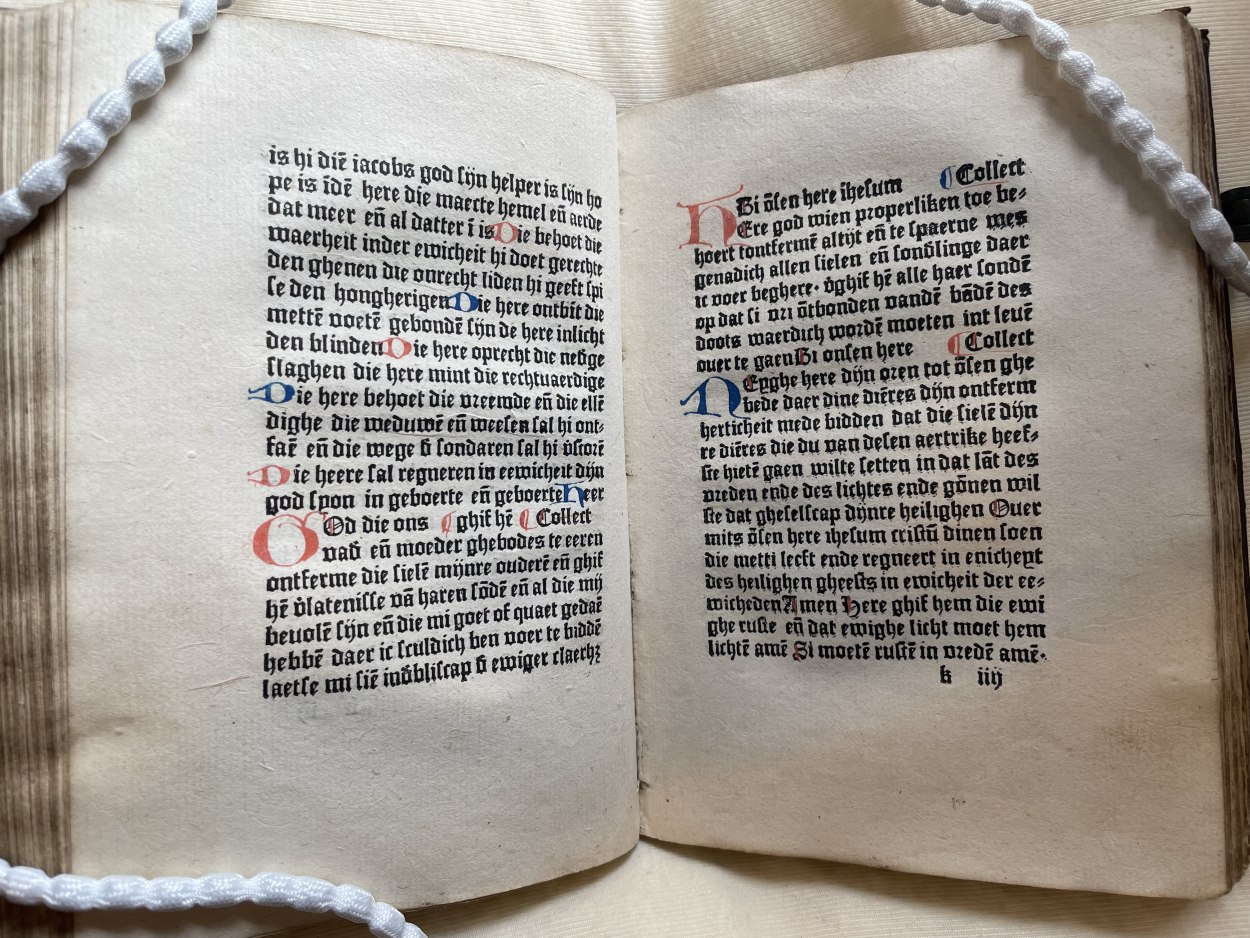 is hi diē iacobs god sijn helper is sijn ho
pe is īdē here die maecte hemel eñ aerde
dat meer eñ al datter ī is Die behoet die
waerheit inder ewicheit hi doet gerechte
den ghenen die onrecht liden hi geeft spi
se den hongherigen Die here ontbīt die
mettē voetē gebondē sijn de here inlicht
den blinden Die here oprecht die nedge
slaghen die here mint die rechtuaerdige
Die here behoet die vreemde eñ die ellē
dighe die weduwē eñ weesen sal hi ont⸗
faē eñ die wege đ sondaren sal hi v̄storē
Die heere sal regneren in eewicheit dijn
god syon in geboerte eñ geboerte Heer
GOd die ons ¶ ghif hē ¶ Collect
vad̄ eñ moeder ghebodes te eeren
ontferme die sielē mijnre ouderē eñ ghif
hē v̄latenisse vā haren sōdē eñ al die mij
beuolē sijn eñ die mi goet of quaet gedaē
hebbē daer ic sculdich ben voer te biddē
laetse mi siē ind̄bliscap đ ewiger claerhꝫ
Bi ōsen here ihesum ¶ Collect
HEre god wien properliken toe be⸗
hoert tontfermē altijt eñ te spaerne wes
genadich allen sielen eñ sond̄linge daer
ic voer beghere. v̄ghif hē alle haer sondē
op dat si vri ōtbonden vandē bādē des
doots waerdich wordē moeten int leuē
ouer te gaen Bi onsen here ¶ Collect
NEyghe here dijn oren tot ōsen ghe
bede daer dine diēres dijn ontferm
herticheit mede bidden dat die sielē dijn
re diēres die du van desen aertrike heef⸗
ste hietē gaen wilte setten in dat lāt des
vreden ende des lichtes ende gōnen wil
ste dat gheselscap dijnre heilighen Ouer
mits ōsen here ihesum cristū dinen soen
die metti leeft ende regneert in enicheyt
des heilighen gheests in ewicheit der ee⸗
wicheden Amen Here ghif hem die ewi
ghe ruste eñ dat ewighe licht moet hem
lichtē amē Si moetē rustē in vredē amē.
k iiij